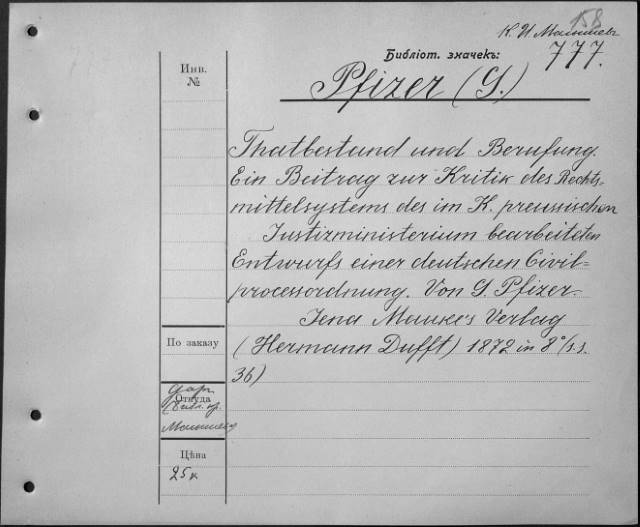 158
К. И. Малышевъ
Библіот. значекъ:
777.
Инв.
№
Pfizer (G.)
Thatbestand und Berufung.
Ein Beitrag zur Kritik des Rechts-
mittelsystems des im K. preussischen
Justizministerium bearbeiteten
Entwurfs einer deutschen Civil=
processordnung. Von G. Pfizer.
Jena Mauke's Verlag
(Hermann Dufft) 1872 in 8°/s.s.
36)
По заказу
Дар.
Откуда
Малышева
Цѣна
25 к